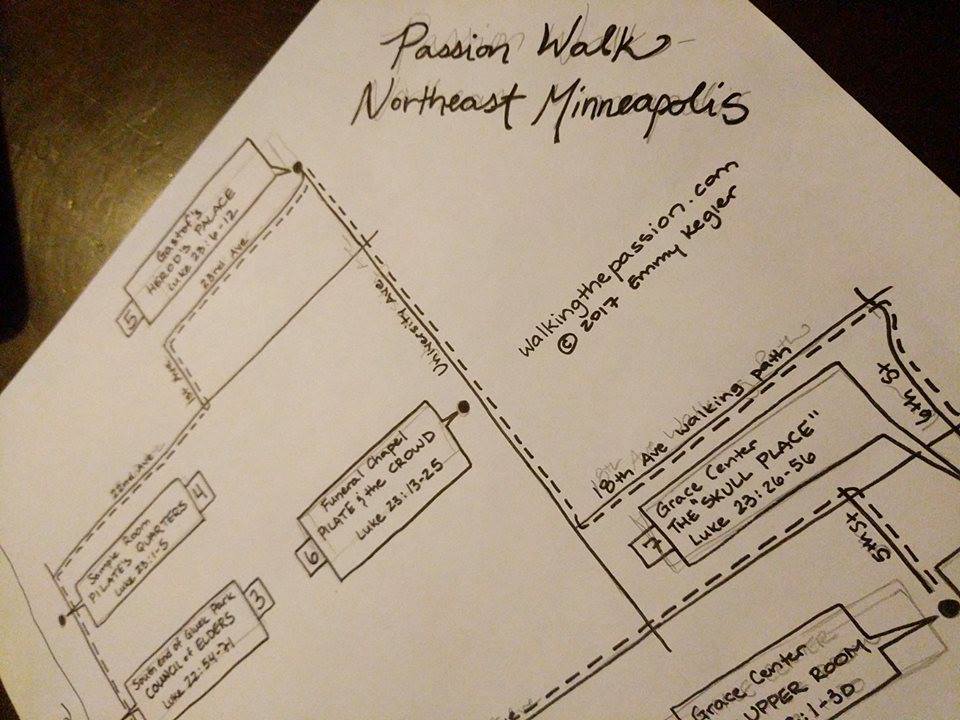 Passion Walk
Northeast Minneapolis
walkingthepassion.com
© 2017 Emmy Kegler
Gastof's
HEROD'S PALACE
Luke 23:6-12
5
23rd Ave
1st Ave
University Ave
22nd Ave
Sample Room
PILATE'S QUARTERS
Luke 23:1-5
4
South end of Gluek Park
COUNCIL of ELDERS
Luke 22:54-71
3
Funeral Chapel
PILATE & the CROWD
Luke 23:13-25
6
18th Ave Walking path
6th St
Grace Center
THE "SKULL PLACE"
Luke 23:26-56
7
5th St
Grace Center
UPPER ROOM
:1-30